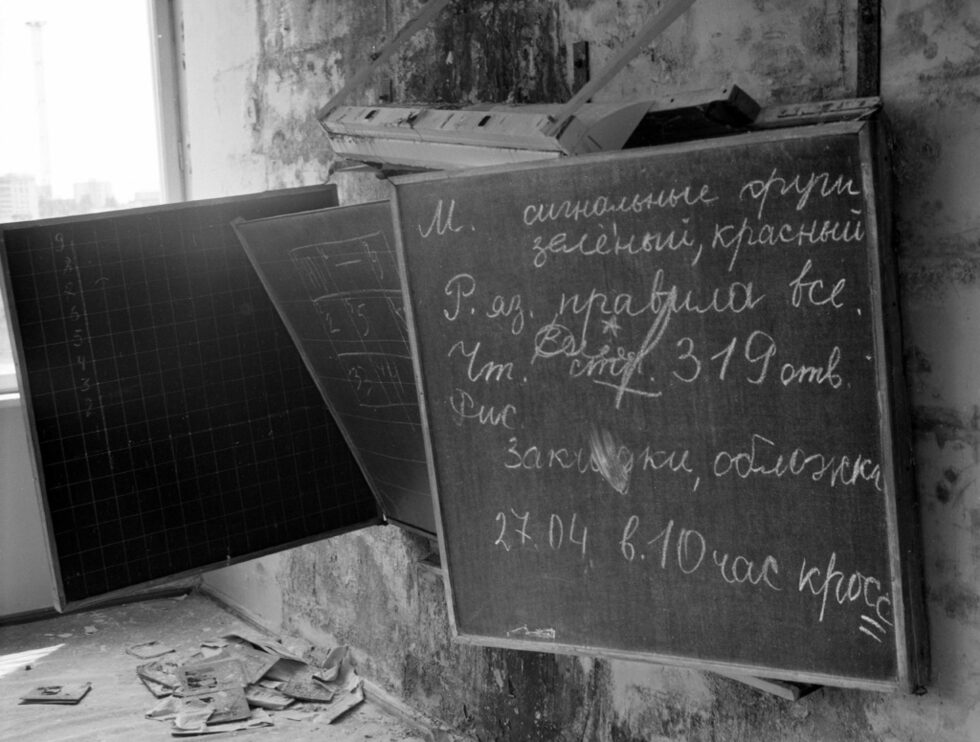 М. сигнальные
зелёный, красный
Р. яз. правила все.
Чт. стр. 319 отв.
Рис.
Закладки, обложки
27.04 в. 10 час кросс